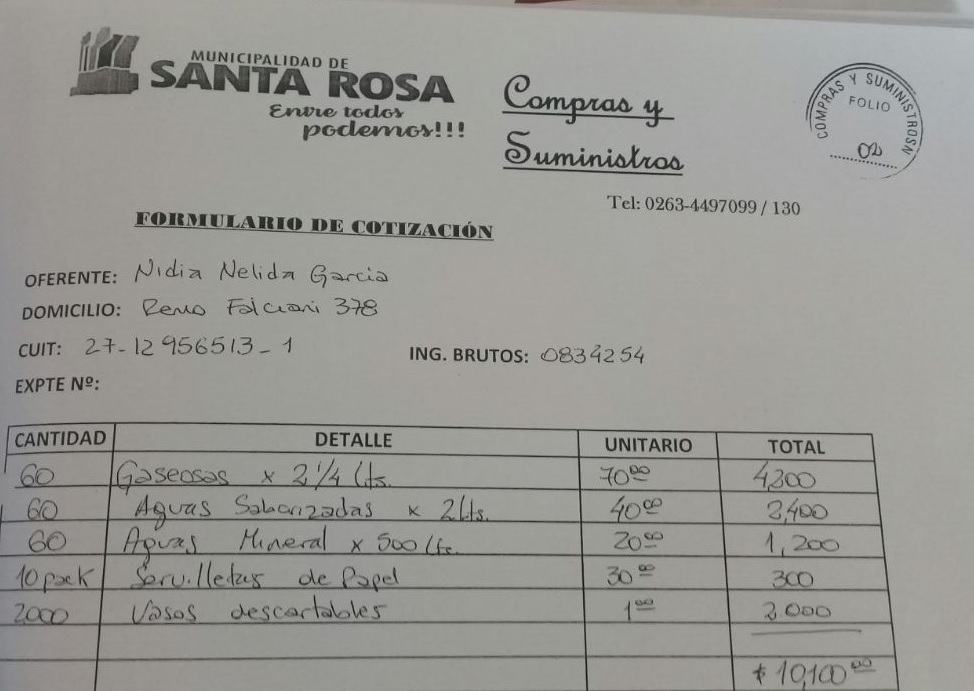 MUNICIPALIDAD DE
SANTA ROSA
Entre todos
podemos!!!
Compras y
Suministros
COMPRAS Y SUMINISTROSN
FOLIO
02
Tel: 0263-4497099 / 130
FORMULARIO DE COTIZACIÓN
OFERENTE: Nidia Nelida Garcia
DOMICILIO: Remo Falciani 378
CUIT: 27-12956513-1 ING. BRUTOS: 0834254
EXPTE Nº:
CANTIDAD DETALLE UNITARIO TOTAL
60 Gaseosas x 2 1/4 Lts. 7000 4200
60 Aguas Saborizadas x 2 Lts. 4000 2,400
60 Aguas Mineral x 500 Lts. 2000 1,200
10 pack Servilletas de Papel 3000 300
2000 Vasos descartables 100 2.000
$ 10,10000